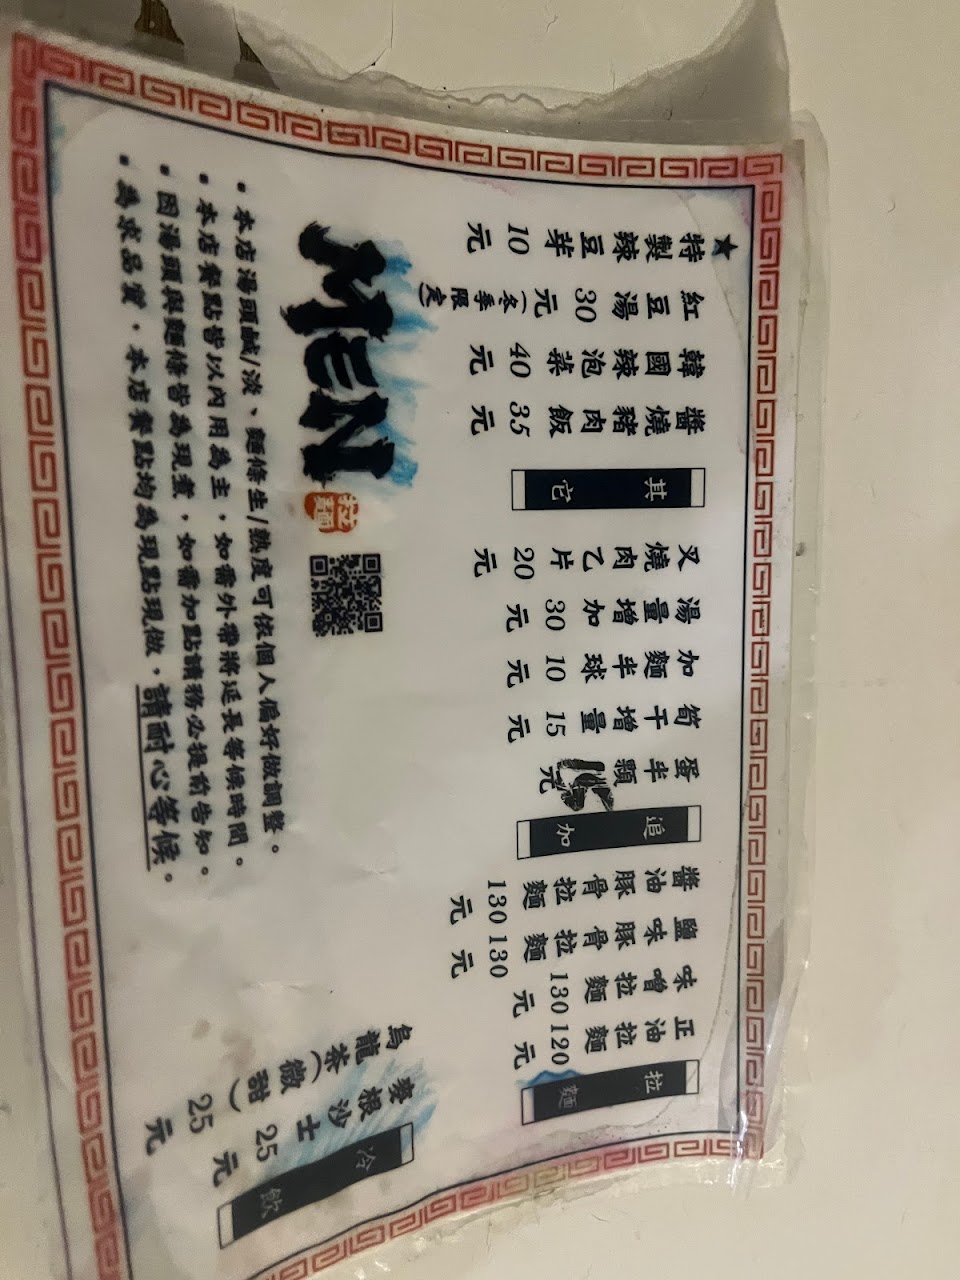 拉麵
正油拉麵 120元
味噌拉麵 130元
鹽味豚骨拉麵 130元
醬油豚骨拉麵 130元
追加
蛋半顆 元
筍干增量 15元
加麵半球 10元
湯量增加 30元
叉燒肉乙片 20元
其它
醬燒豬肉飯 35元
韓國辣泡菜 40元
紅豆湯 30元(冬季限定)
★特製辣豆芽 10元
冷飲
麥根沙士 25元
烏龍茶(微甜) 25元
MEN
拉麵
▪本店湯頭鹹/淡、麵條生/熟度可依個人偏好做調整。
▪本店餐點皆以內用為主,如需外帶將延長等候時間。
▪因湯頭與麵條皆為現煮,如需加點請務必提前告知。
▪為求品質,本店餐點均為現點現做,請耐心等候。